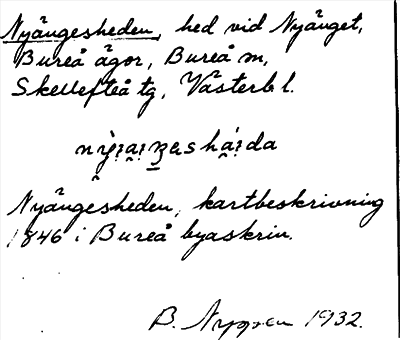 Nyängesheden, hed vid Nyänget,
Bureå ägor, Bureå sn,
Skellefteå tg, Västerb l.
Nyängesheden, kartbeskrivning
1846 i Bureå byaskrin.
B. Nygren 1932.